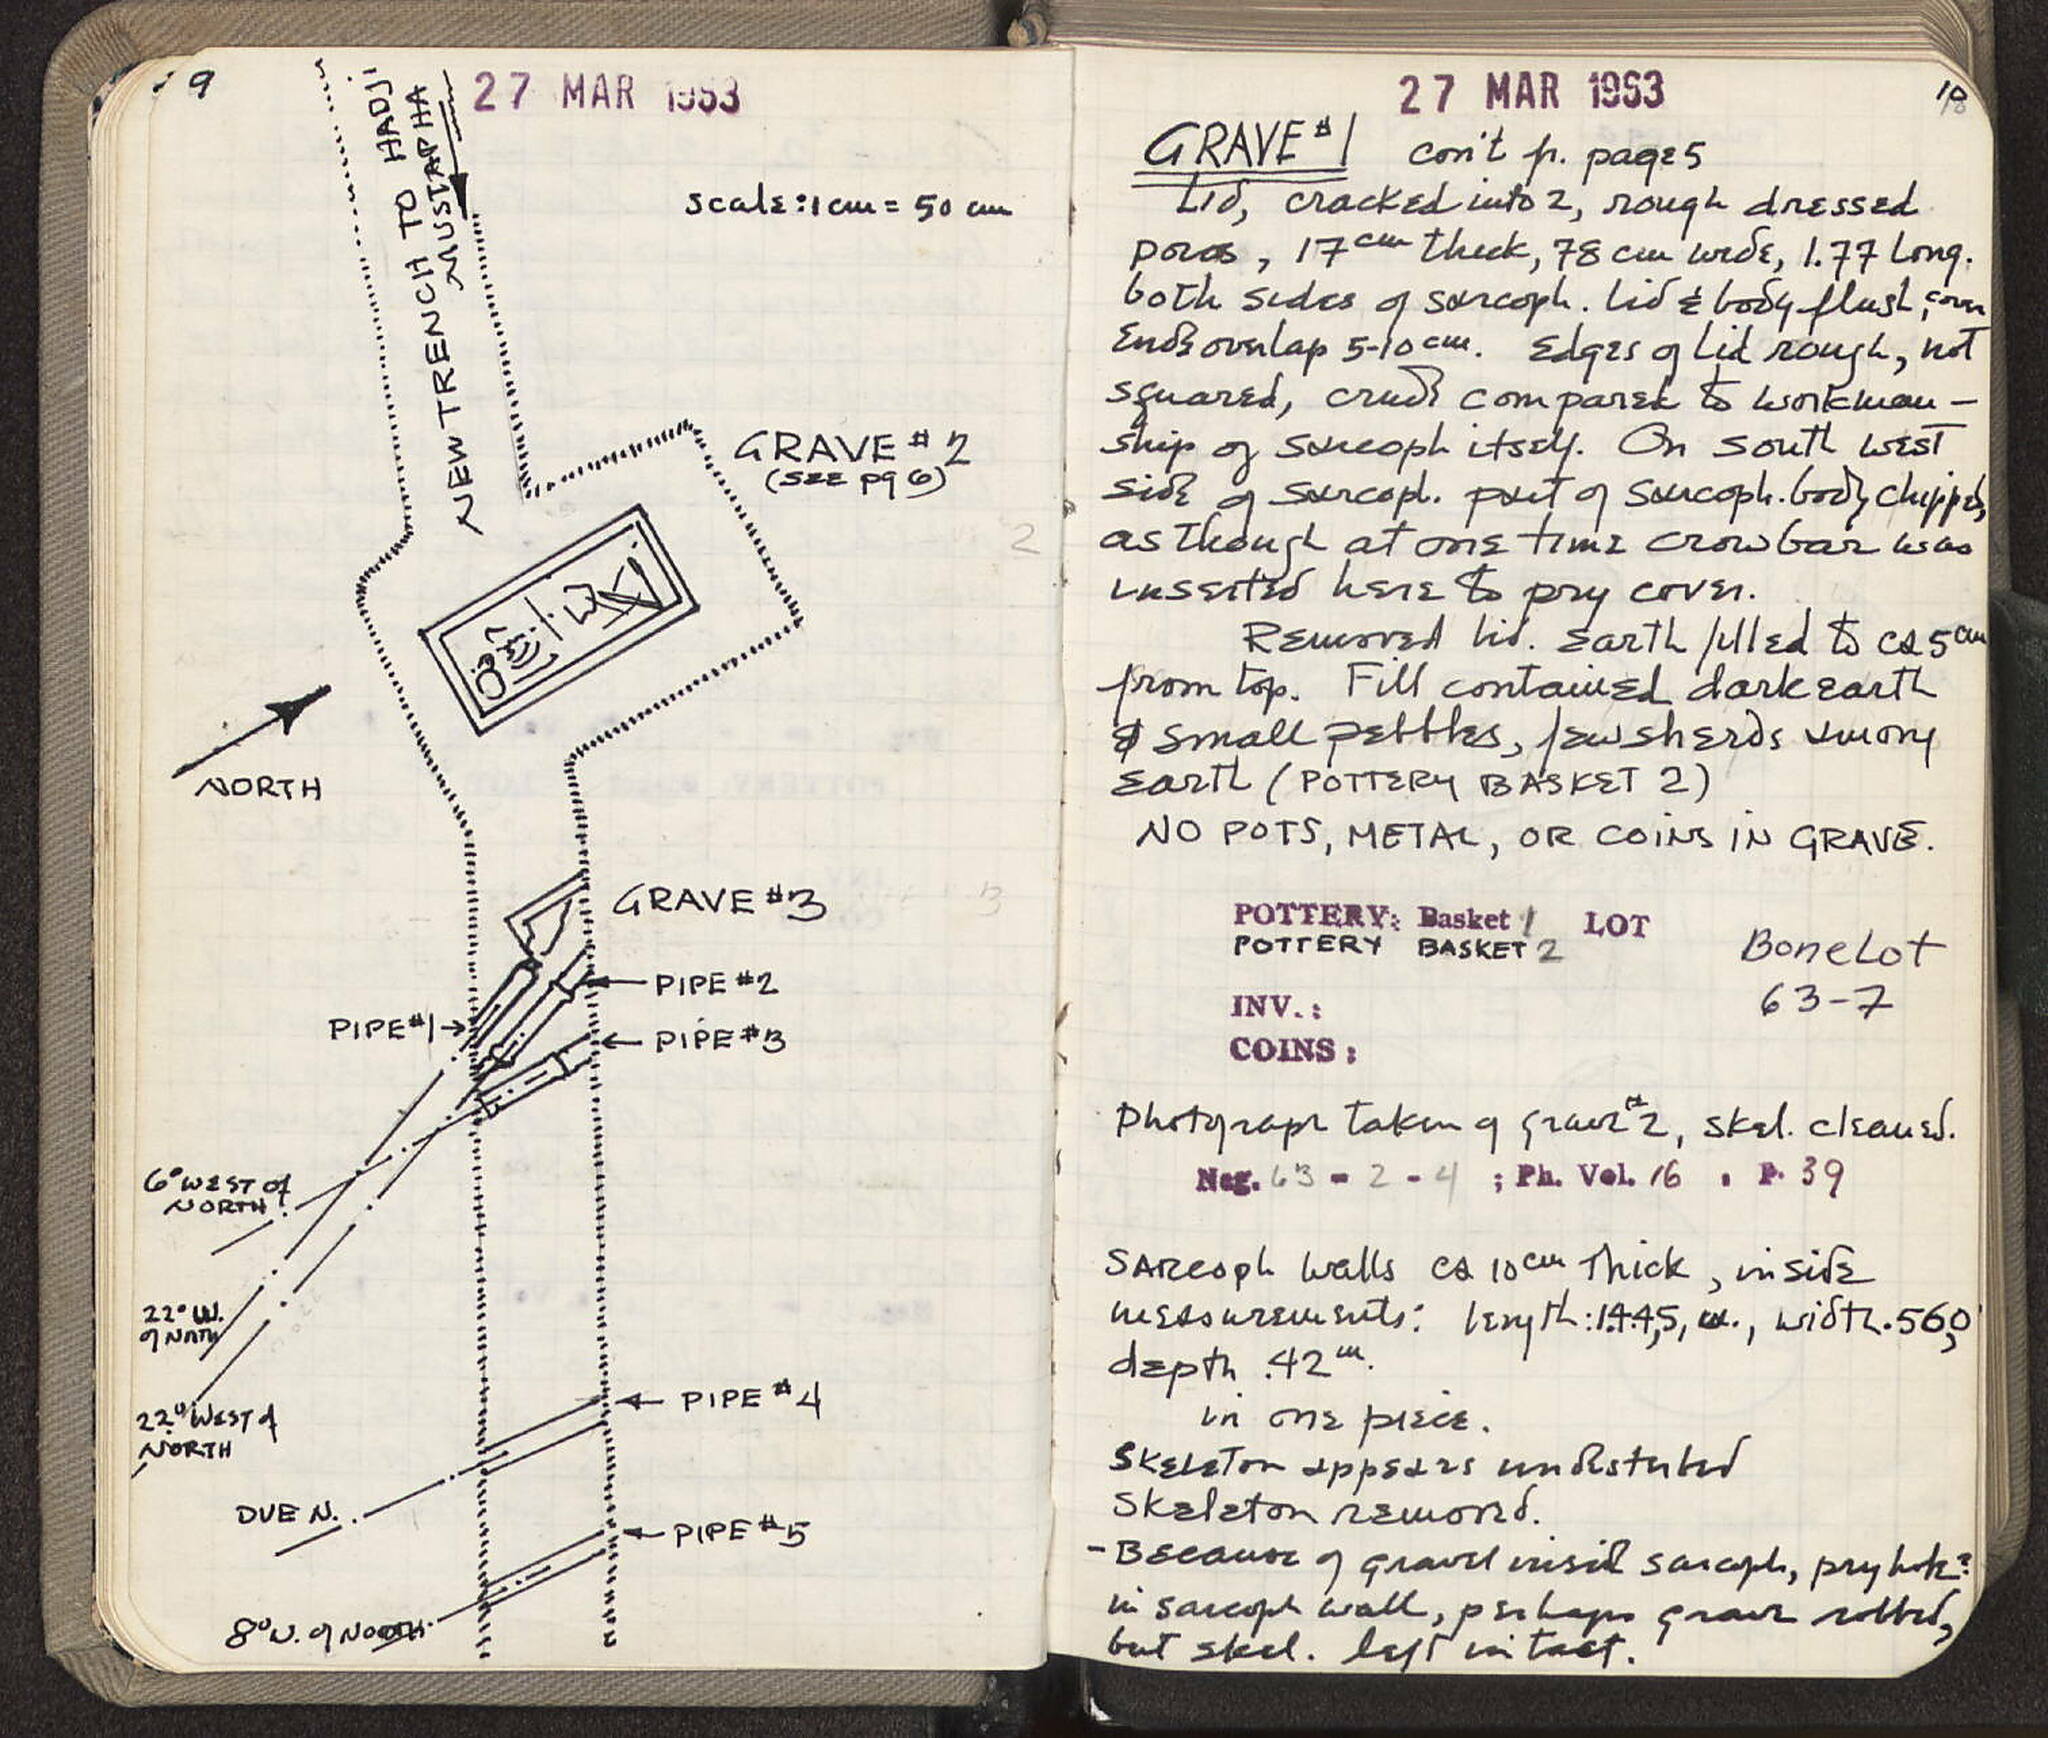 9
27 MAR 1963
NEW TRENCH TO HADJI
MUSTAPHA
scale: 1 cm = 50 cm
GRAVE #2
(SEE pg 6)
NORTH
GRAVE #3
PIPE #2
PIPE #1
PIPE #3
6° WEST of
NORTH
22° W.
of NORTH
22° WEST of
NORTH
PIPE #4
DUE N.
PIPE #5
8° W. of NORTH
27 MAR 1963
10
GRAVE #1 con't fr. page 5
Lid, cracked into 2, rough dressed
poros, 17 cm thick, 78 cm wide, 1.77 long.
both sides of sarcoph. lid & body flush,
ends overlap 5-10 cm. Edges of lid rough, not
squared, crude compared to workman-
ship of sarcoph itself. On south west
side of sarcoph. part of sarcoph. body chipped,
as though at one time crowbar was
inserted here to pry cover.
Removed lid. Earth filled to ca 5 cm
from top. Fill contained dark earth
& small pebbles, few sherds among
earth (POTTERY BASKET 2)
NO POTS, METAL, OR COINS IN GRAVE.
POTTERY: Basket 1 LOT
POTTERY BASKET 2
Bone Lot
63-7
INV.:
COINS:
Photograph taken of grave #2, skel. cleaned.
Neg. 63 - 2 - 4 ; Ph. Vol. 16 . P. 39
Sarcoph walls ca 10 cm thick, inside
measurements: length: 1.44,5, m., width .56,0
depth .42 m.
in one piece.
Skeleton appears undisturbed
Skeleton removed.
- Because of gravel inside sarcoph, pry hole?
in sarcoph wall, perhaps grave robbed,
but skel. left intact.